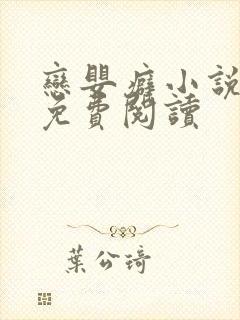 戀嬰癖小說
免費閱讀
葉公琦